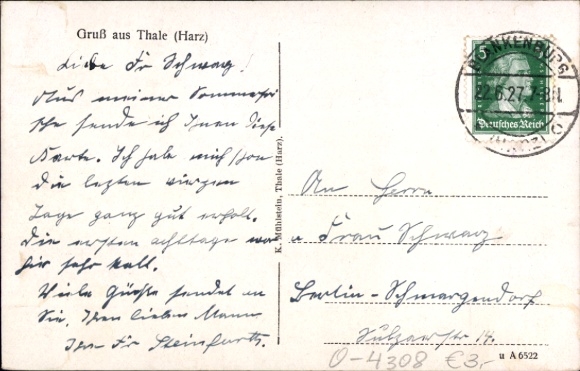 Gruß aus Thale (Harz)
Liebe Fr Schwarz!
Aus meiner Sommerfri
sche sende ich Ihnen diese
Karte. Ich habe mich schon
die letzten
Tage ganz gut erholt.
Die ersten achttage war
hier sehr kalt.
Viele Grüße sendet an
Sie, Ihren lieben Mann
Ihre Fr Steinfurth.
K. Mühlstein, Thale (Harz).
5
Deutsches Reich
BLANKENBURG
22.6.27. 7-8N.
(HARZ)
An Herrn
u Frau Schwarz
Berlin-Schmargendorf
Sulzaerstr 14.
0-4308 €3,-
u A 6522